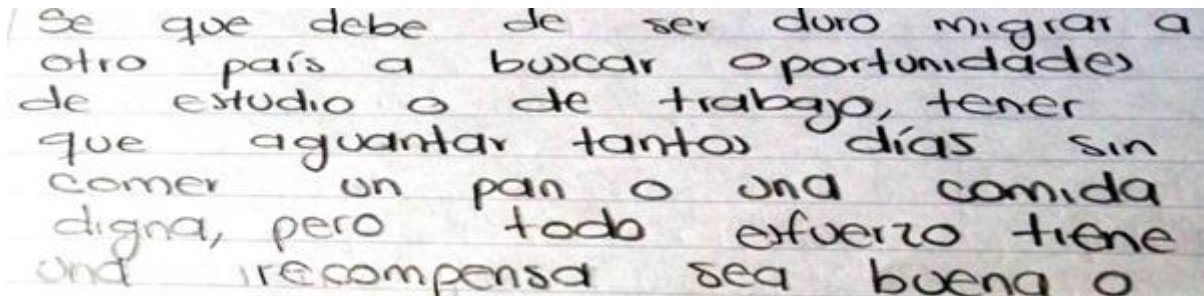 Se que debe de ser duro migrar a
otro país a buscar oportunidades
de estudio o de trabajo, tener
que aguantar tantos días sin
comer un pan o una comida
digna, pero todo esfuerzo tiene
una recompensa sea buena o